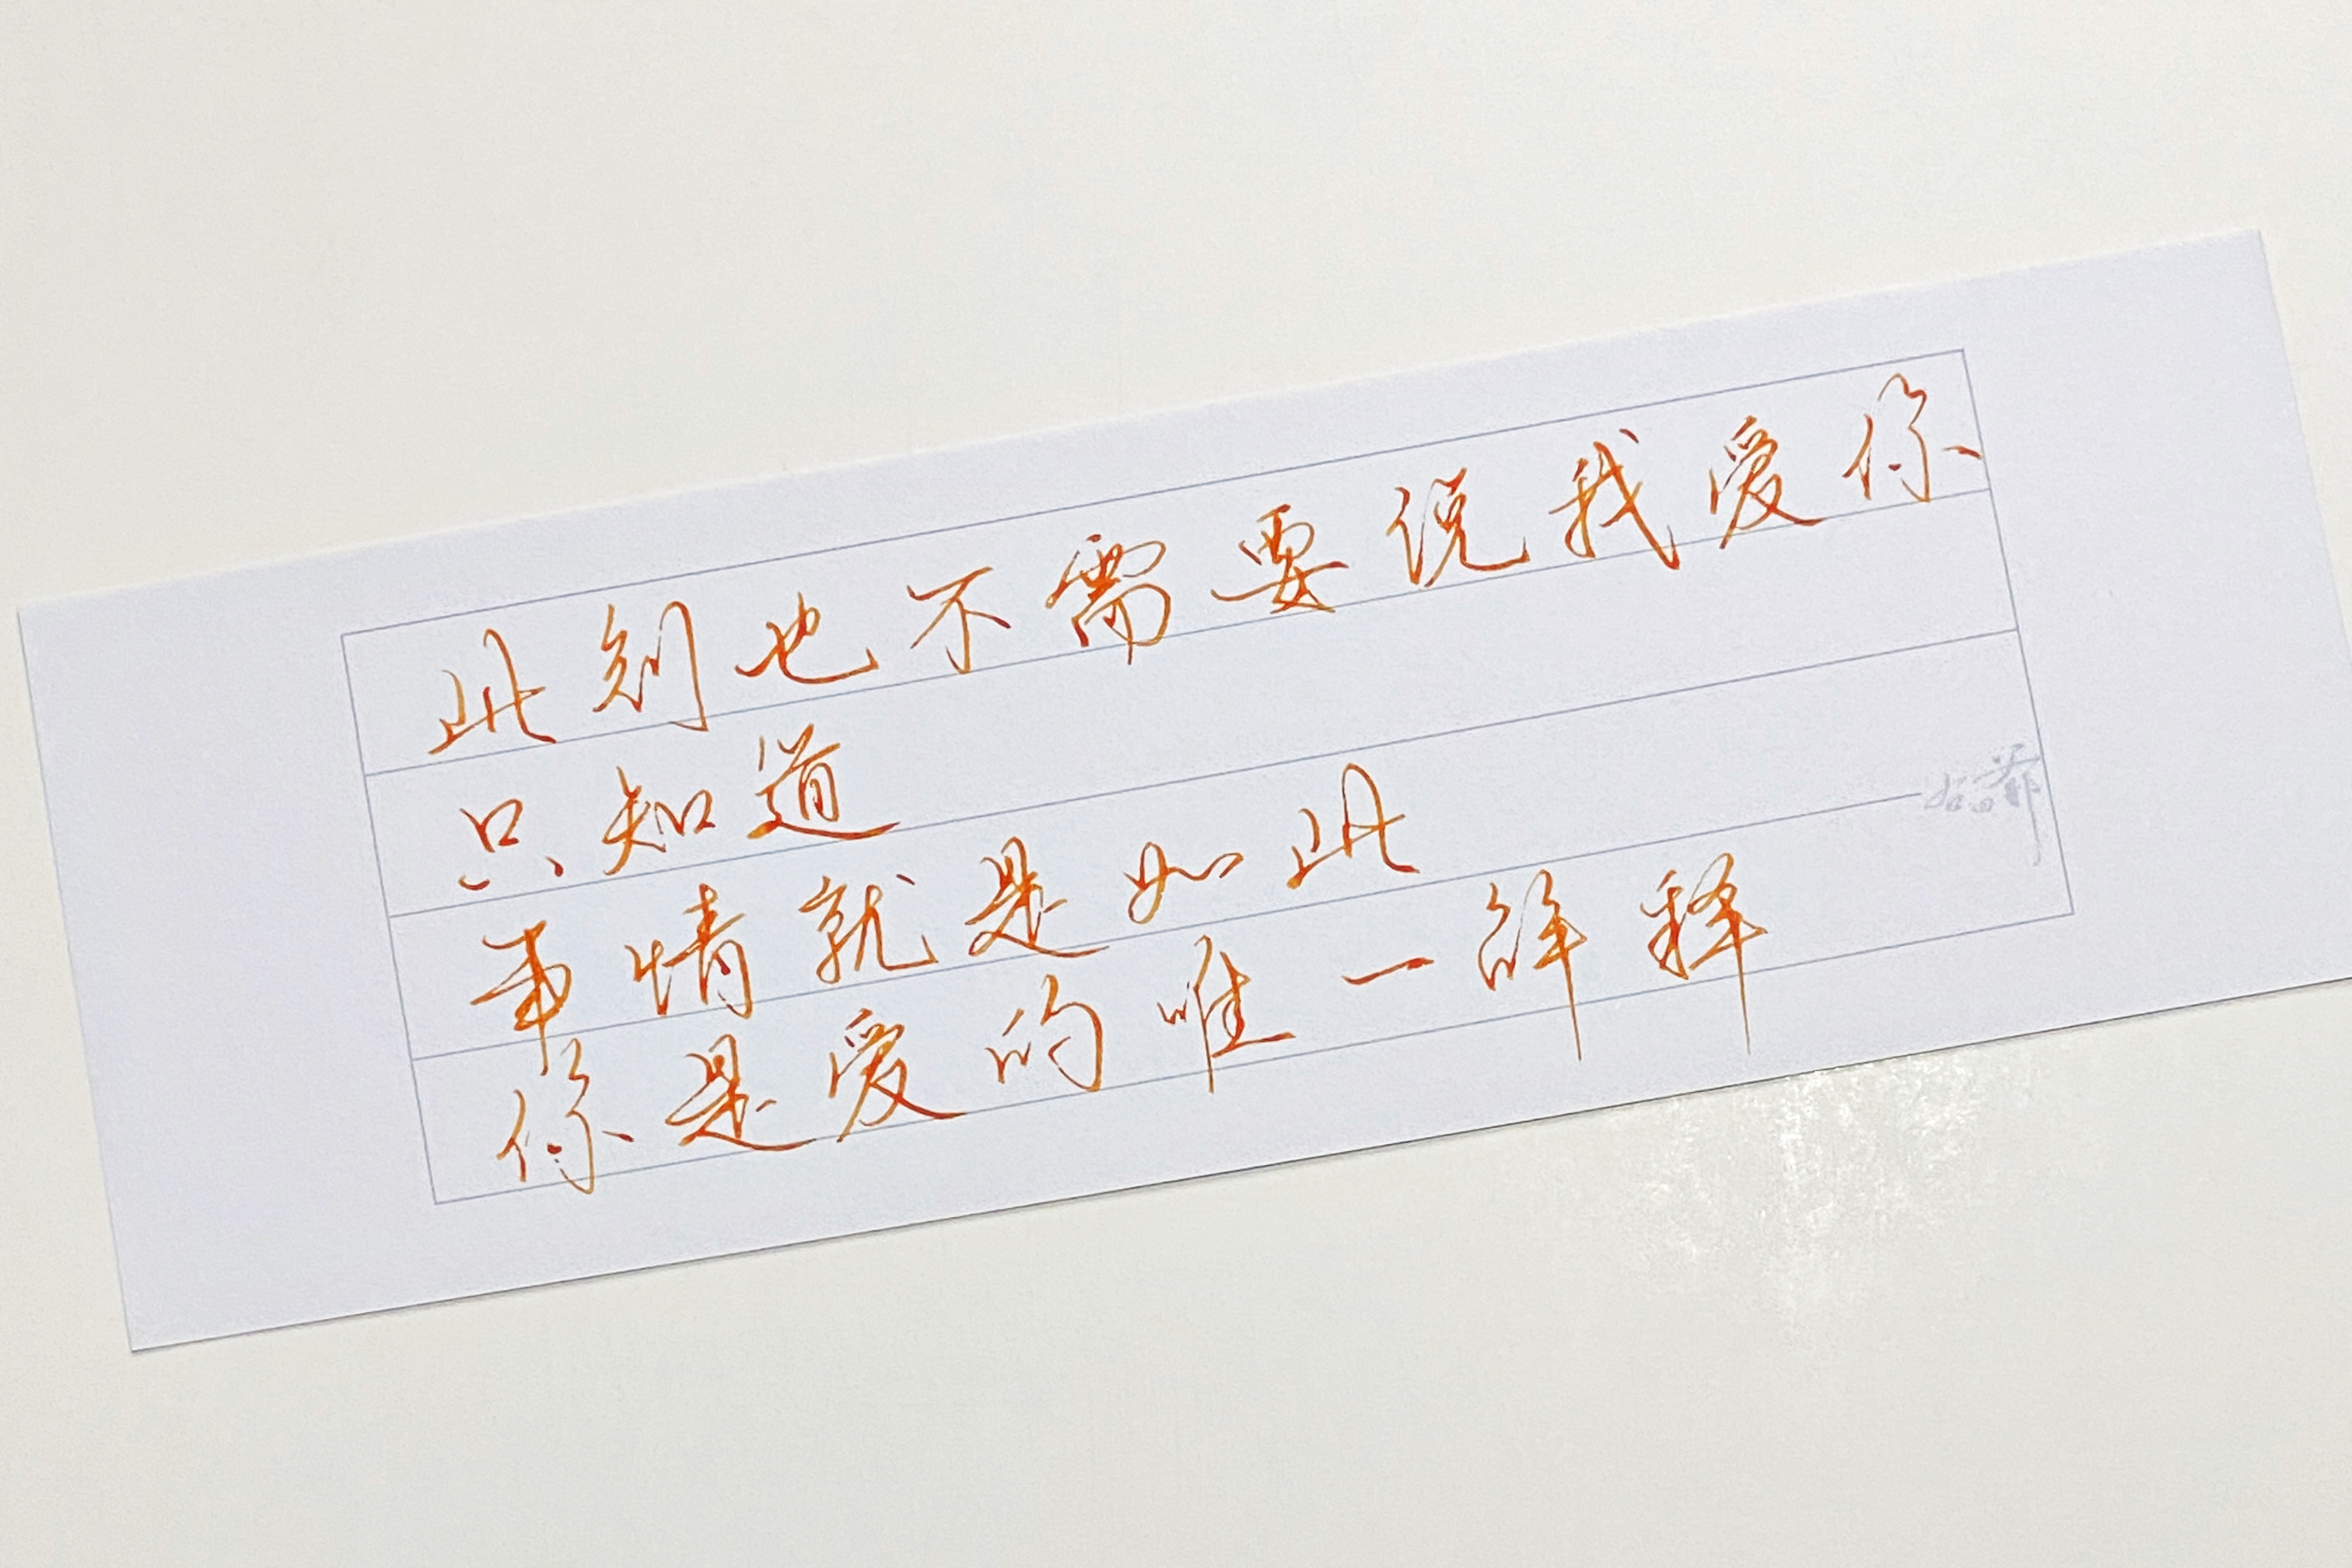 此刻也不需要说我爱你
只知道
事情就是如此
你是爱的唯一解释